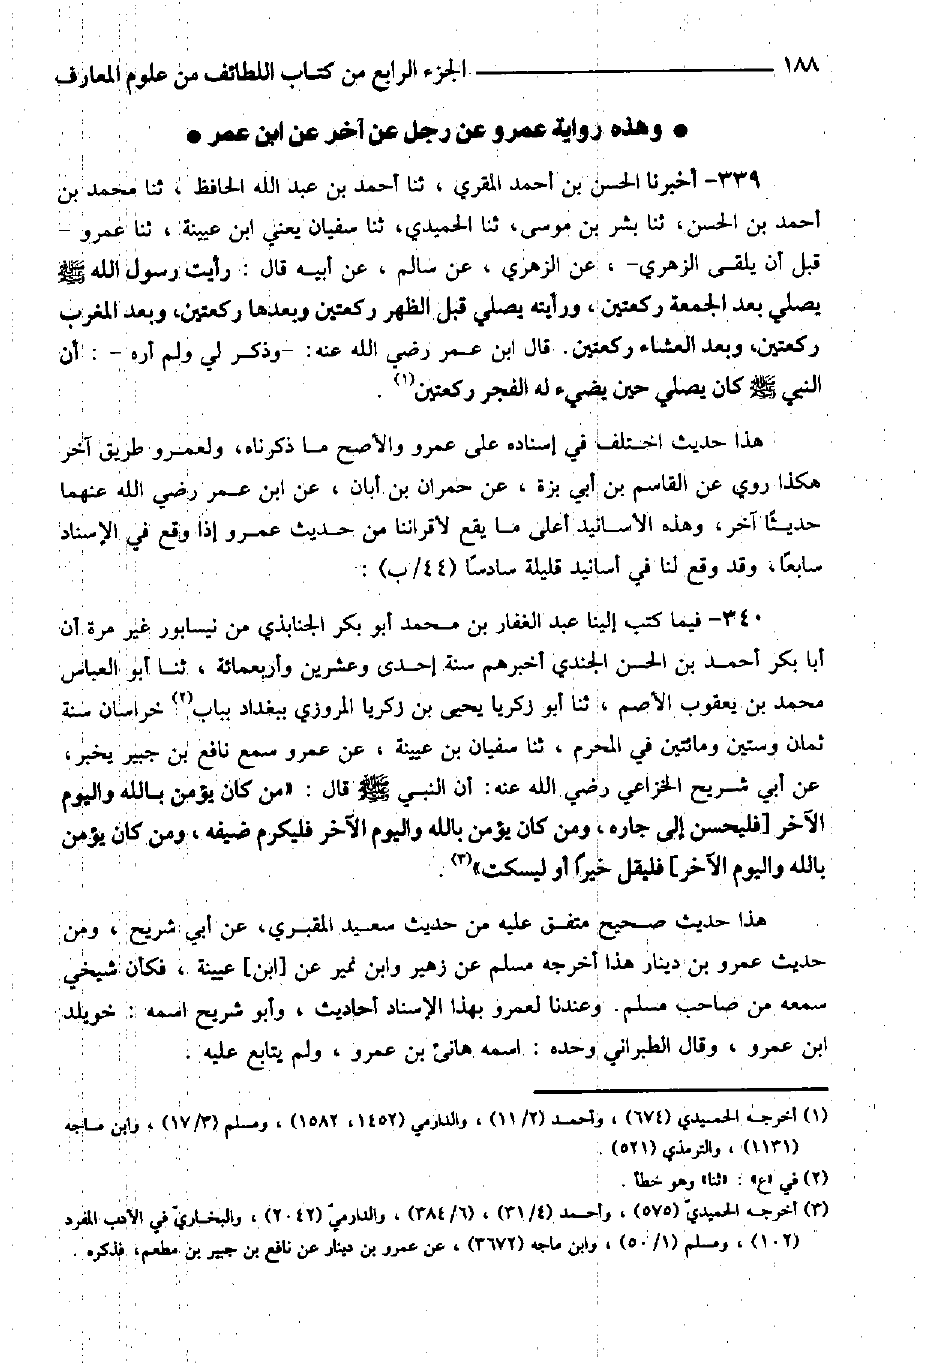 ١٨٨ ــــــــــــ الجزء الرابع من كتاب اللطائف من علوم المعارف
● وهذه رواية عمرو عن رجل عن آخر عن ابن عمر ●
٣٣٩- أخبرنا الحسن بن أحمد المقري ، ثنا أحمد بن عبد الله الحافظ ، ثنا محمد بن
أحمد بن الحسن، ثنا بشر بن موسى، ثنا الحميدي، ثنا سفيان يعني ابن عيينة ، ثنا عمرو -
قبل أن يلقى الزهري- ، عن الزهري ، عن سالم ، عن أبيه قال : رأيت رسول الله ﷺ
يصلي بعد الجمعة ركعتين ، ورأيته يصلي قبل الظهر ركعتين وبعدها ركعتين، وبعد المغرب
ركعتين، وبعد العشاء ركعتين. قال ابن عمر رضي الله عنه: -وذكر لي ولم أره - : أن
النبي ﷺ كان يصلي حين يضيء له الفجر ركعتين(١) .
هذا حديث اختلف في إسناده على عمرو والأصح ما ذكرناه، ولعمرو طريق آخر
هكذا روي عن القاسم بن أبي بزة ، عن حمران بن أبان ، عن ابن عمر رضي الله عنهما
حديثًا آخر، وهذه الأسانيد أعلى ما يقع لأقراننا من حديث عمرو إذا وقع في الإسناد
سابعًا، وقد وقع لنا في أسانيد قليلة سادسًا (٤٤/ب) :
٣٤٠- فيما كتب إلينا عبد الغفار بن محمد أبو بكر الجنابذي من نيسابور غير مرة أن
أبا بكر أحمد بن الحسن الجندي أخبرهم سنة إحدى وعشرين وأربعمائة ، ثنا أبو العباس
محمد بن يعقوب الأصم ، ثنا أبو زكريا يحيى بن زكريا المروزي ببغداد بباب(٢) خراسان سنة
ثمان وستين ومائتين في المحرم ، ثنا سفيان بن عيينة ، عن عمرو سمع نافع بن جبير يخبر،
عن أبي شريح الخزاعي رضي الله عنه: أن النبي ﷺ قال : «من كان يؤمن بالله واليوم
الآخر [فليحسن إلى جاره، ومن كان يؤمن بالله واليوم الآخر فليكرم ضيفه ، ومن كان يؤمن
بالله واليوم الآخر] فليقل خيرًا أو ليسكت»(٣) .
هذا حديث صحيح متفق عليه من حديث سعيد المقبري، عن أبي شريح ، ومن
حديث عمرو بن دينار هذا أخرجه مسلم عن زهير وابن نمير عن [ابن] عيينة ، فكأن شيخي
سمعه من صاحب مسلم. وعندنا لعمرو بهذا الإسناد أحاديث ، وأبو شريح اسمه : خويلد
ابن عمرو ، وقال الطبراني وحده : اسمه هانئ بن عمرو ، ولم يتابع عليه .
(١) أخرجه الحميدي (٦٧٤) ، وأحمد (١١/٢) ، والدارمي (١٤٥٢، ١٥٨٢) ، ومسلم (١٧/٣) ، وابن ماجه
(١١٣١) ، والترمذي (٥٢١) .
(٢) في «ع» : «ثنا» وهو خطأ .
(٣) أخرجه الحميديّ (٥٧٥) ، وأحمد (٣١/٤) ، (٣٨٤/٦) ، والدارميّ (٢٠٤٢) ، والبخاريّ في الأدب المفرد
(١٠٢) ، ومسلم (٥٠/١) ، وابن ماجه (٣٦٧٢) ، عن عمرو بن دينار عن نافع بن جبير بن مطعم، فذكره .